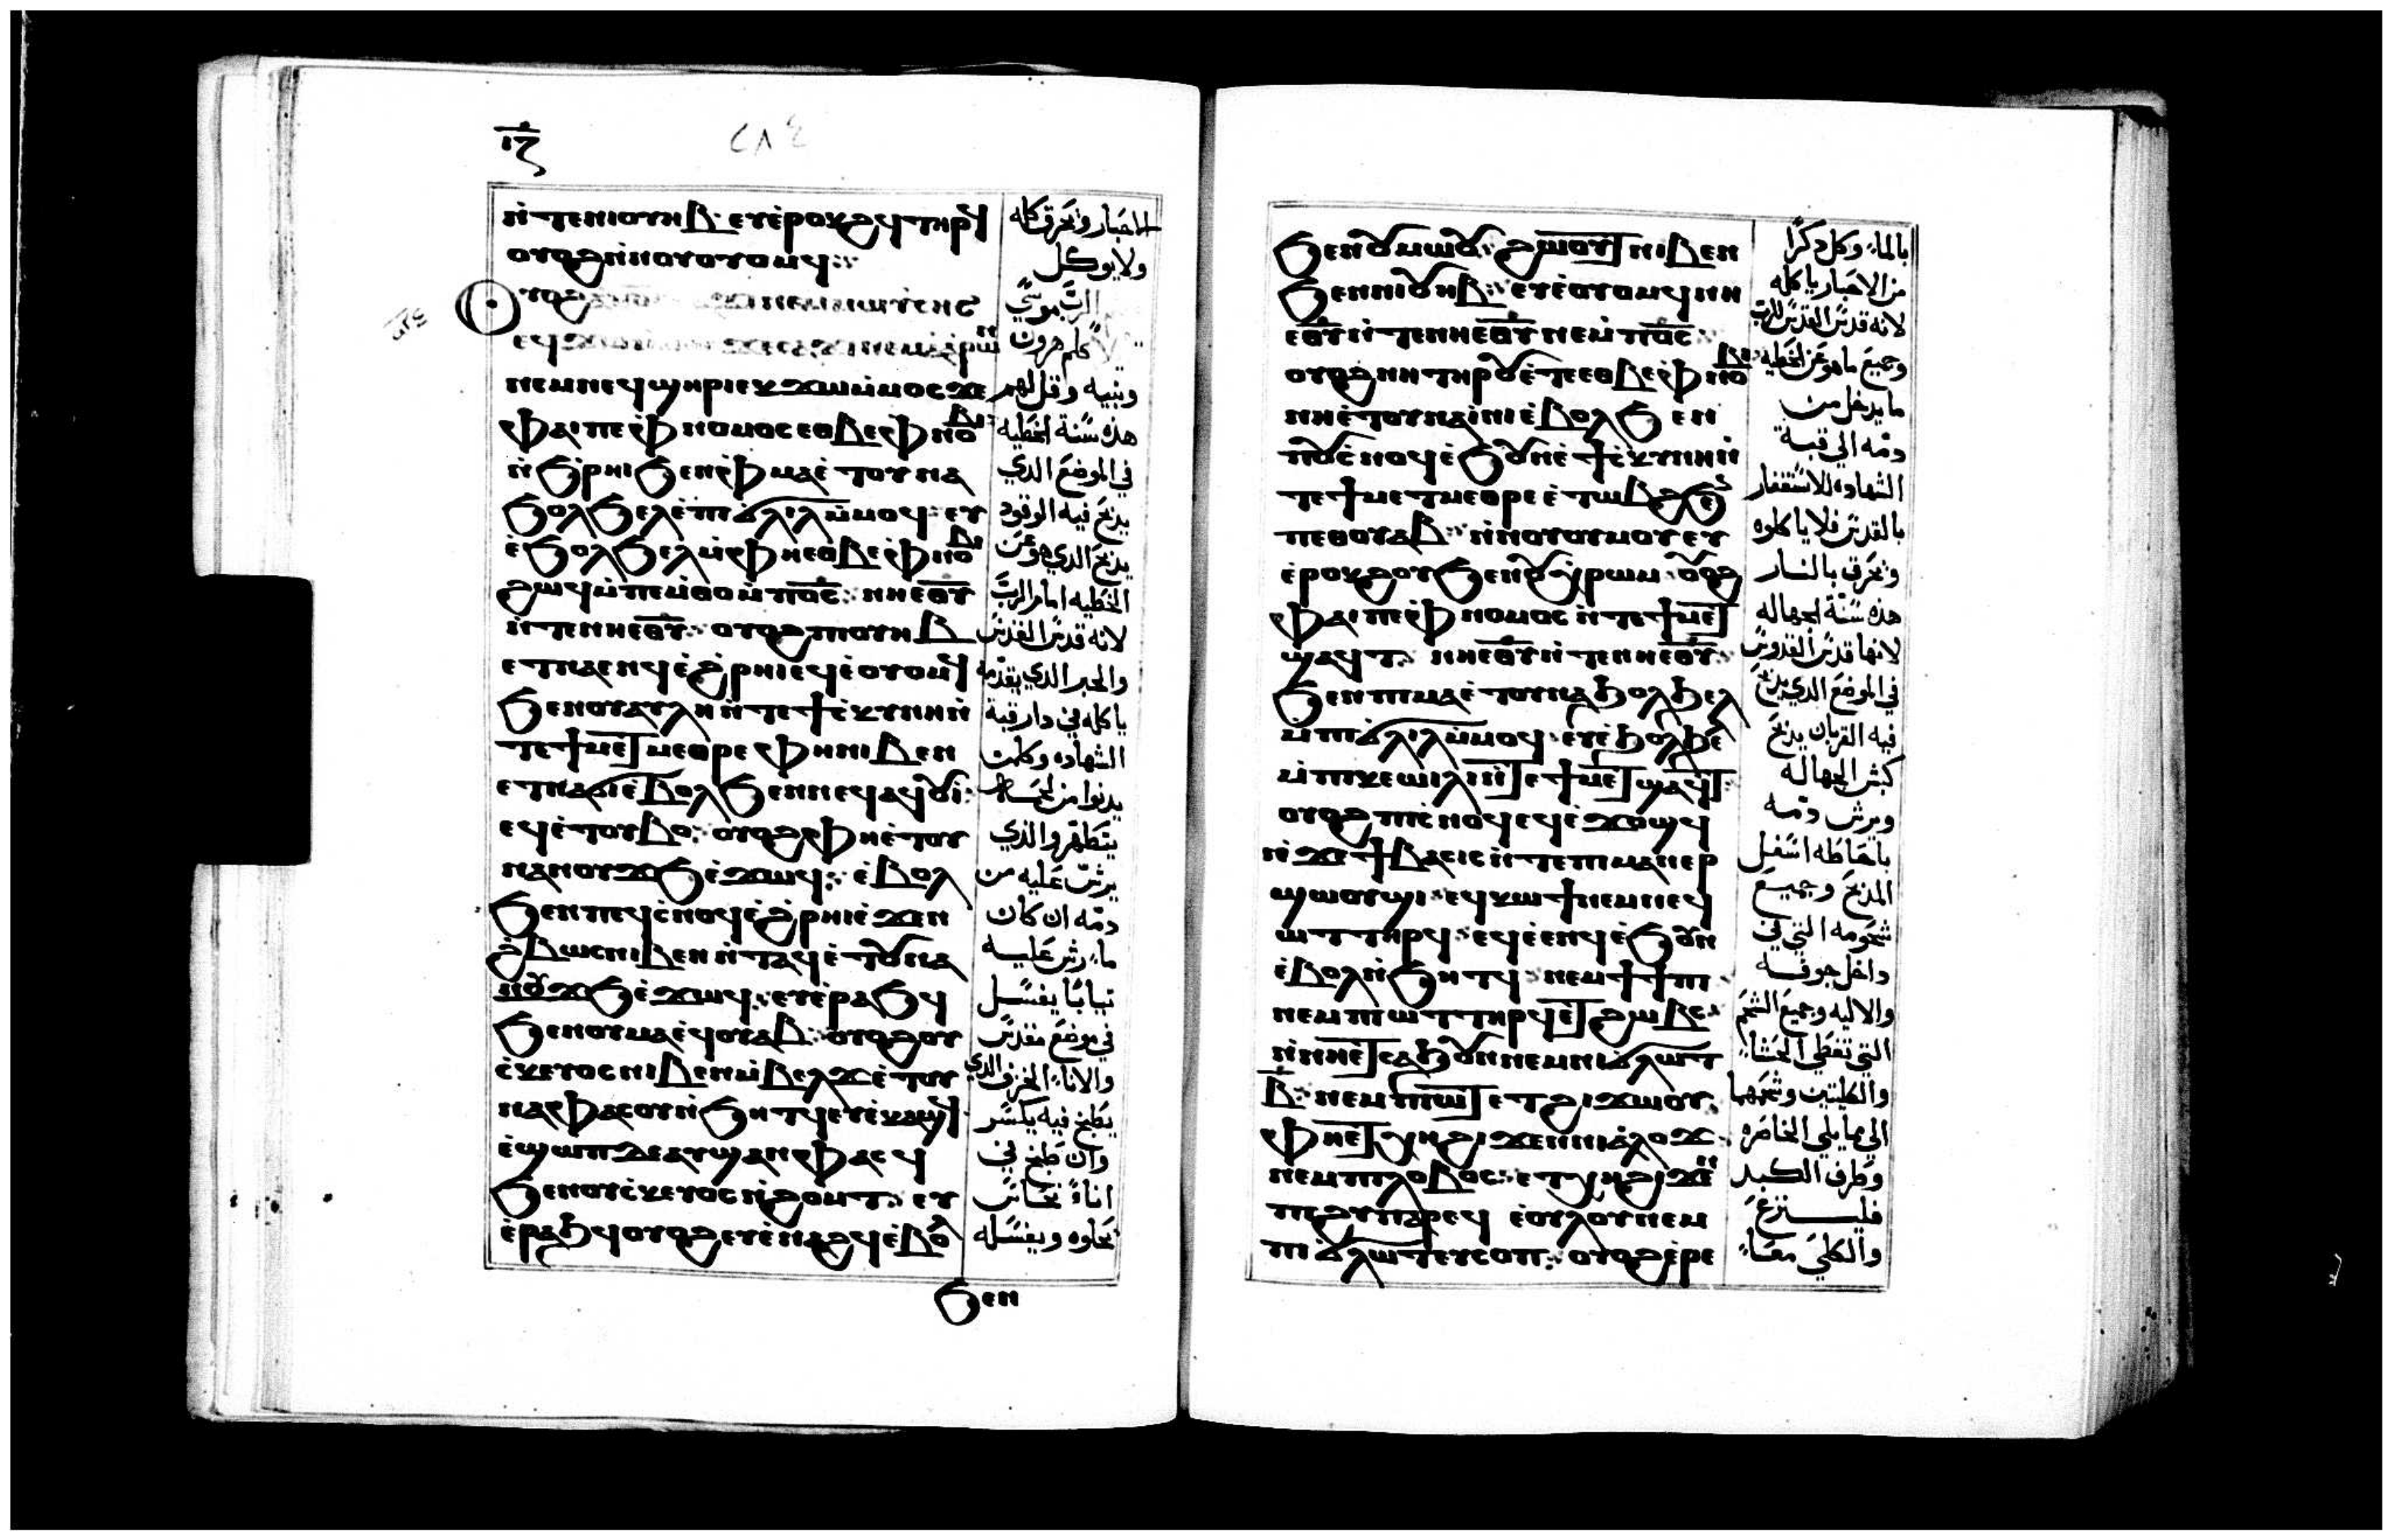 ⲓⲍ
٢٨٤
ⲛ̀ⲧⲉⲡⲓⲟⲩⲏⲃ ⲉⲩⲉ̀ⲣⲟⲕϩϥ ⲧⲏⲣϥ
ⲟⲩⲟϩ ⲛ̀ⲛⲟⲩⲟⲩⲟⲙϥ
ⲛⲉⲙⲙⲱⲩⲥⲏⲥ
ⲛⲉⲙⲛⲉϥϣⲏⲣⲓ ⲉⲕϫⲱ ⲙ̀ⲙⲟⲥ ϫⲉ
ⲫⲁⲓ ⲡⲉ ⲫⲛⲟⲙⲟⲥ ⲉⲑⲃⲉ ⲫⲛⲟⲃⲓ
ⲛ̀ϧⲣⲏⲓ ϧⲉⲛ ⲫⲙⲁ ⲉ̀ⲧⲟⲩⲛⲁ
ϧⲟⲗϧⲉⲗ ⲉ̀ⲡⲓϭⲗⲓⲗ ⲙ̀ⲙⲟϥ ⲉⲩ
ⲉ̀ϧⲟⲗϧⲉⲗ ⲙ̀ⲫⲏ ⲉⲑⲃⲉ ⲫⲛⲟⲃⲓ
ϩⲱϥ ⲙ̀ⲡⲉⲙ̀ⲑⲟ ⲙ̀ⲡⲟ̅ⲥ̅ ⲛⲏⲉⲑⲩ
ⲛ̀ⲧⲉⲛⲏⲉⲑⲩ ⲟⲩⲟϩ ⲡⲓⲟⲩⲏⲃ
ⲉⲧⲛⲁⲉⲛϥ ⲉ̀ϩⲣⲏⲓ ⲉϥⲉ̀ⲟⲩⲟⲙϥ
ϧⲉⲛⲟⲩⲁⲩⲗⲏ ⲛ̀ⲧⲉϯⲥ̀ⲕⲩⲛⲏ ⲛ̀
ⲧⲉϯⲙⲉⲧⲙⲉⲑⲣⲉ ⲫⲏ ⲛⲓⲃⲉⲛ
ⲉⲧⲛⲁϭⲓ ⲉ̀ⲃⲟⲗ ϧⲉⲛⲛⲉϥⲁϥⲟⲩⲓ
ⲉϥⲉ̀ⲧⲟⲩⲃⲟ ⲟⲩⲟϩ ⲫⲏ ⲉ̀ⲧⲟⲩ
ⲛⲁⲛⲟⲩϫϧ ⲉ̀ϫⲱϥ ⲉ̀ⲃⲟⲗ
ϧⲉⲛⲡⲉϥⲥ̀ⲛⲟϥ ⲉ̀ϩⲣⲏⲓ ⲉ̀ϫⲉⲛ
ϩ̀ⲃⲱⲥ ⲛⲓⲃⲉⲛ ⲛ̀ⲧⲁϥ ⲉ̀ⲧⲟⲩⲛⲁ
ⲛⲟⲩϫϧ ⲉ̀ϫⲱϥ ⲉⲩⲉ̀ⲣⲁϧϥ
ϧⲉⲛⲟⲩⲙⲁ ⲉϥⲟⲩⲁⲃ ⲟⲩⲟϩ ⲟⲩ
ⲥ̀ⲕⲉⲩⲟⲥ ⲛⲓⲃⲉⲛ ⲙ̀ⲃⲉⲗϫ ⲉ̀ⲧⲟⲩ
ⲛⲁⲫⲁⲥⲟⲩ ⲛ̀ϧⲏⲧϥ ⲉⲩⲉ̀ⲕⲁϣϥ
ⲉ̀ϣⲱⲡ ⲇⲉ ⲁⲩϣⲁⲛⲫⲁⲥϥ
ϧⲉⲛⲟⲩⲥ̀ⲕⲉⲩⲟⲥ ⲛ̀ϩⲟⲙⲧ ⲉⲩ
ⲉ̀ⲣⲁϧϥ ⲟⲩⲟϩ ⲉⲩⲉ̀ⲛⲁϩϥ ⲉ̀ⲃⲟⲗ
ϧⲉⲛ
الاحبار وتحرق كله
ولا يوكل
الرب موسى
كلم هرون
وبنيه وقل لهم
هذه سنة الخطيه
في الموضع الدي
يدبح فيه الوقود
يدبح الدي هو عن
الخطيه امام الرب
لانه قدس القدس
والحبر الدي يقدمه
ياكله في دار قبة
الشهاده وكلمن
يتطهر والدي
يرش عليه من
دمه ان كان
ماء رش عليه
تيابا يغسل
في موضع مقدس
والاناء الخزف الدي
يطبخ فيه يكسر
وان طبخ في
اناء نحاس
يجلوه ويغسله
ϧⲉⲛⲟⲩⲙⲱⲟⲩ ϩⲱⲟⲩⲧ ⲛⲓⲃⲉⲛ
ϧⲉⲛⲛⲓⲟⲩⲏⲃ ⲉⲩⲉ̀ⲟⲩⲟⲙϥ ⲛⲏ
ⲉⲑⲩ ⲛ̀ⲧⲉⲛⲏⲉⲑⲩ ⲛⲉⲙ ⲡⲟ̅ⲥ̅
ⲟⲩⲟϩ ⲛⲏ ⲧⲏⲣⲟⲩ ⲉ̀ⲧⲉ ⲉⲑⲃⲉ ⲫⲛⲟⲃⲓ
ⲛⲏ ⲉ̀ⲧⲟⲩⲛⲁⲓ̀ⲛⲓ ⲉ̀ⲃⲟⲗ ϧⲉⲛ
ⲡⲟⲩⲥ̀ⲛⲟϥ ⲉ̀ϧⲟⲩⲛ ⲉ̀ϯⲥ̀ⲕⲩⲛⲏ ⲛ̀
ⲧⲉϯⲙⲉⲧⲙⲉⲑⲣⲉ ⲉ̀ⲧⲱⲃϩ ϧⲉⲛ
ⲡⲉⲑⲟⲩⲁⲃ ⲛ̀ⲛⲟⲩⲟⲩⲙⲟⲩ ⲉⲩ
ⲉ̀ⲣⲟⲕϩⲟⲩ ϧⲉⲛⲟⲩⲭ̀ⲣⲱⲙ ⲟⲩⲟϩ
ⲫⲁⲓ ⲡⲉ ⲫⲛⲟⲙⲟⲥ ⲛ̀ⲧⲉϯⲙⲉⲧ
ϣⲁϥⲧ ⲛⲏⲉⲑⲩ ⲛ̀ⲧⲉⲛⲏⲉⲑⲩ
ϧⲉⲛⲡⲓⲙⲁ ⲉ̀ⲧⲟⲩⲛⲁϧⲟⲗϧⲉⲗ
ⲙ̀ⲡⲓϭⲗⲓⲗ ⲙ̀ⲙⲟϥ ⲉⲩⲉ̀ϧⲟⲗϧⲉⲗ
ⲙ̀ⲡⲓⲕⲉⲱⲓⲗⲓ ⲛ̀ⲧⲉϯⲙⲉⲧϣⲁϥⲧ
ⲟⲩⲟϩ ⲡⲓⲥ̀ⲛⲟϥ ⲉϥⲉ̀ϫⲟϣϥ
ⲛ̀ϫⲉϯⲃⲁⲥⲓⲥ ⲛ̀ⲧⲉⲡⲓⲙⲁⲛⲉⲣ
ϣⲱⲟⲩϣⲓ ⲉϥⲕⲱϯ ⲛⲉⲙⲡⲉϥ
ⲱⲧ ⲧⲏⲣϥ ⲉϥⲉ̀ⲉⲛϥ ⲉ̀ϧⲟⲩⲛ
ⲉ̀ⲃⲟⲗ ⲛ̀ϧⲏⲧϥ ⲛⲉⲙϯϯⲡⲓ
ⲛⲉⲙⲡⲓⲱⲧ ⲧⲏⲣϥ ⲉⲧϩⲱⲃⲥ
ⲛ̀ⲛⲏ ⲉⲧⲥⲁϧⲟⲩⲛ ⲛⲉⲙⲛⲓϭⲗⲱⲧ
ⲃ̅ ⲛⲉⲙⲡⲓⲱⲧ ⲉⲧϩⲓϫⲱⲟⲩ
ⲫⲏ ⲉⲧⲭⲏ ϩⲓϫⲉⲛ ⲛⲓⲁ̀ⲗⲟϫ
ⲛⲉⲙⲡⲓⲗⲟⲃⲟⲥ ⲉⲧⲭⲏ ϩⲓϫⲉⲛ
ⲡⲓϩⲩⲡⲁⲣ ⲉϥⲉ̀ⲟⲗⲟⲩ ⲛⲉⲙ
ⲡⲓϭⲗⲱⲧ ⲉⲩⲥⲟⲡ ⲟⲩⲟϩ ⲉ̀ⲣⲉ
بالماء وكل دكرا
من الاحبار ياكله
لانه قدس القدس للرب
وجميع ما هو عن الخطيه
ما يدخل من
دمه الى قبة
الشهاده للاستغفار
بالقدس فلا ياكلوه
وتحرق بالنار
هذه سنة الجهاله
لانها قدس القدوس
في الموضع الدي يدبح
فيه القربان يدبح
كبش الجهاله
ويرش دمه
باحاطه اسفل
المدبح وجميع
شحومه التي في
داخل جوفه
والاليه وجميع الشحم
التي تغطي الحشاء
والكليتين وشحمهما
الي ما يلي الخاصره
وطرف الكبد
فلينزع
والكلي معاء